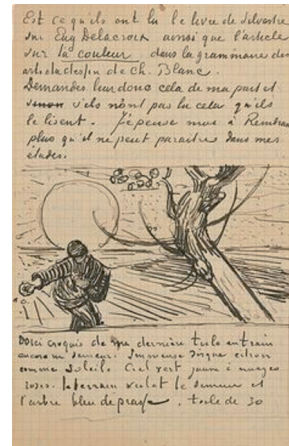 Est ce qu'ils ont lu le livre de Silvestre
sur Eug Delacroix ainsi que l'article
sur la couleur dans la grammaire des
arts du dessin de Ch. Blanc.
Demandez leur donc cela de ma part et
sinon s'ils n'ont pas lu cela qu'ils
le lisent. J'epense moi à Rembrandt
plus qu'il ne peut paraitre dans mes
études.
Voici croquis de ma dernière toile en train
encore un Semeur. Immense disque citron
comme soleil. Ciel vert jaune à nuages
roses. le terrain violet le semeur et
l'arbre bleu de prusse. toile de 30